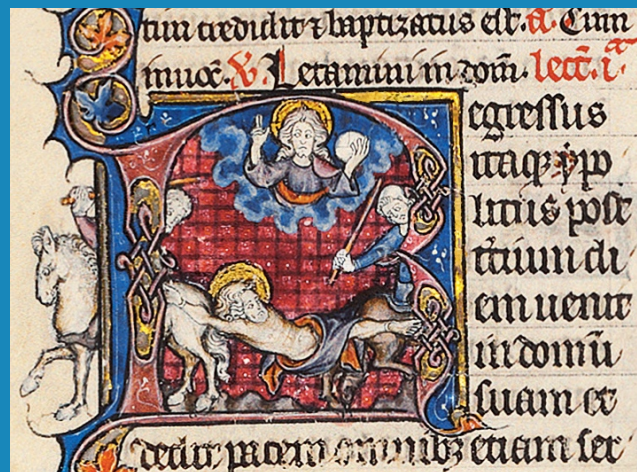 tum credidit ⁊ baptizatus est. a. Cum
inuoc̄. V. Letamini in dom̄. lect̄. i.ᵃ
Regressus
itaqꝫ ypo
litus post
t̄cium di
em uenit
in domū
suam et
dedit pacem omnibꝫ etiam ser